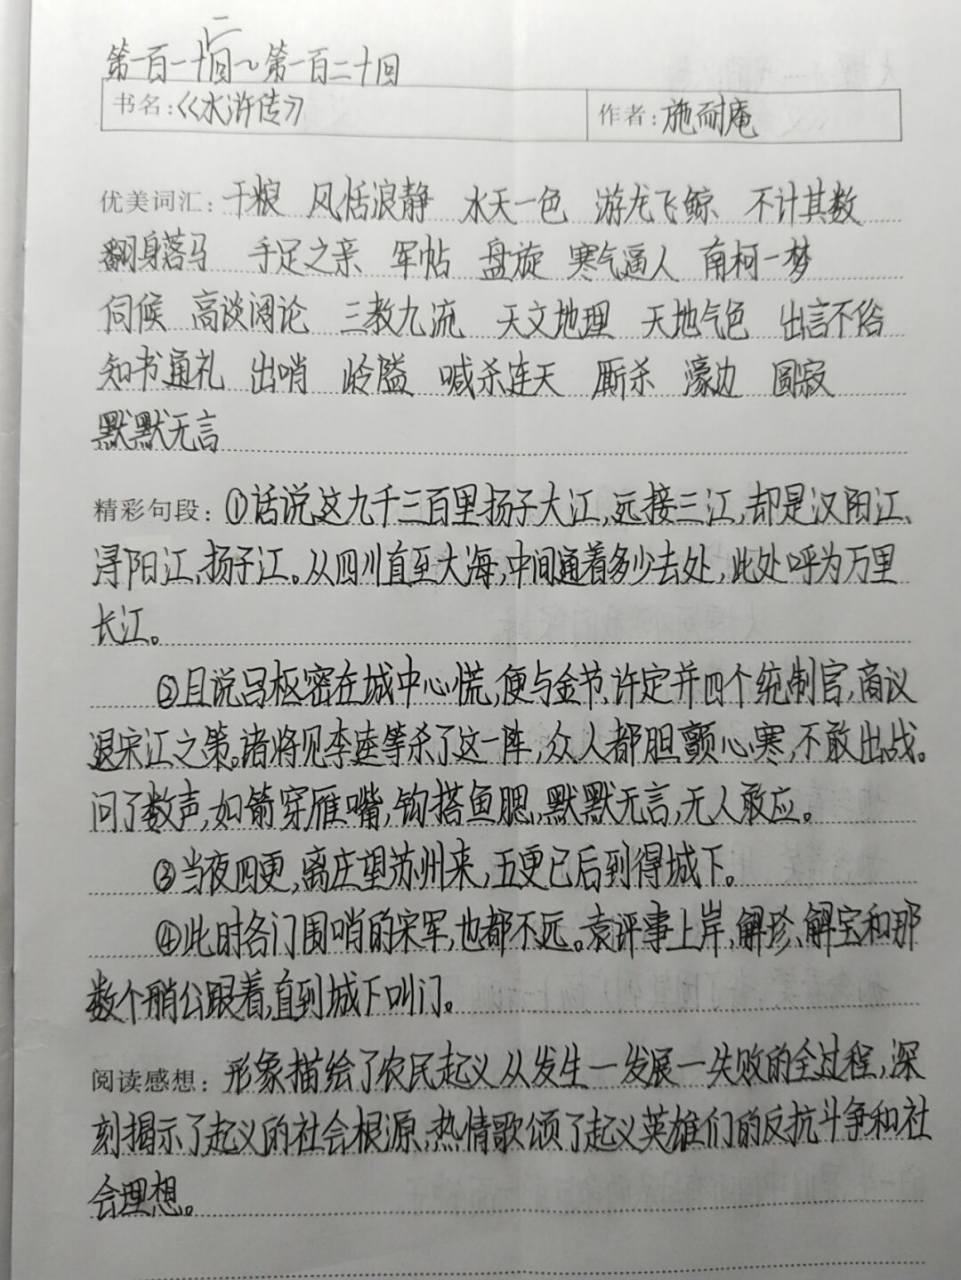 二
第一百一十回~第一百二十回
书名:《水浒传》 作者:施耐庵
优美词汇:干粮 风恬浪静 水天一色 游龙飞鲸 不计其数
翻身落马 手足之亲 军帖 盘旋 寒气逼人 南柯一梦
伺候 高谈阔论 三教九流 天文地理 天地气色 出言不俗
知书通礼 出哨 岭隘 喊杀连天 厮杀 濠边 圆寂
默默无言
精彩句段:①话说这九千三百里扬子大江,远接三江,却是汉阳江、
浔阳江、扬子江。从四川直至大海,中间通着多少去处,此处呼为万里
长江。
②且说吕枢密在城中心慌,便与金节、许定并四个统制官,商议
退宋江之策。诸将见李逵等杀了这一阵,众人都胆颤心寒,不敢出战。
问了数声,如箭穿雁嘴,钩搭鱼腮,默默无言,无人敢应。
③当夜四更,离庄望苏州来,五更已后到得城下。
④此时各门围哨的宋军,也都不远。袁评事上岸,解珍、解宝和那
数个稍公跟着,直到城下叫门。
阅读感想:形象描绘了农民起义从发生一发展一失败的全过程,深
刻揭示了起义的社会根源,热情歌颂了起义英雄们的反抗斗争和社
会理想。